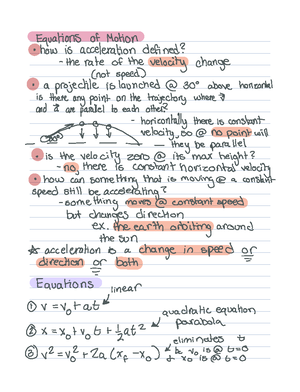 Equations of Motion
how is acceleration defined?
- the rate of the velocity change
(not speed)
a projectile is launched @ 30° above horizontal
is there any point on the trajectory where v
and a are parallel to each other?
- horizontally there is constant
velocity, so @ no point will
they be parallel
is the velocity zero @ its max height?
- no, there is constant horizontal velocity
how can something that is moving @ a constant
speed still be accelerating?
- something moves @ constant speed
but changes direction
ex. the earth orbiting around
the sun
☆ acceleration is a change in speed or
direction or both
Equations
linear
① v = v₀ + at
quadratic equation
parabola
② x = x₀ + v₀ t + ½ at²
eliminates t
③ v² = v₀² + 2a (x_f - x₀)
v₀ is @ t=0
x₀ is @ t=0